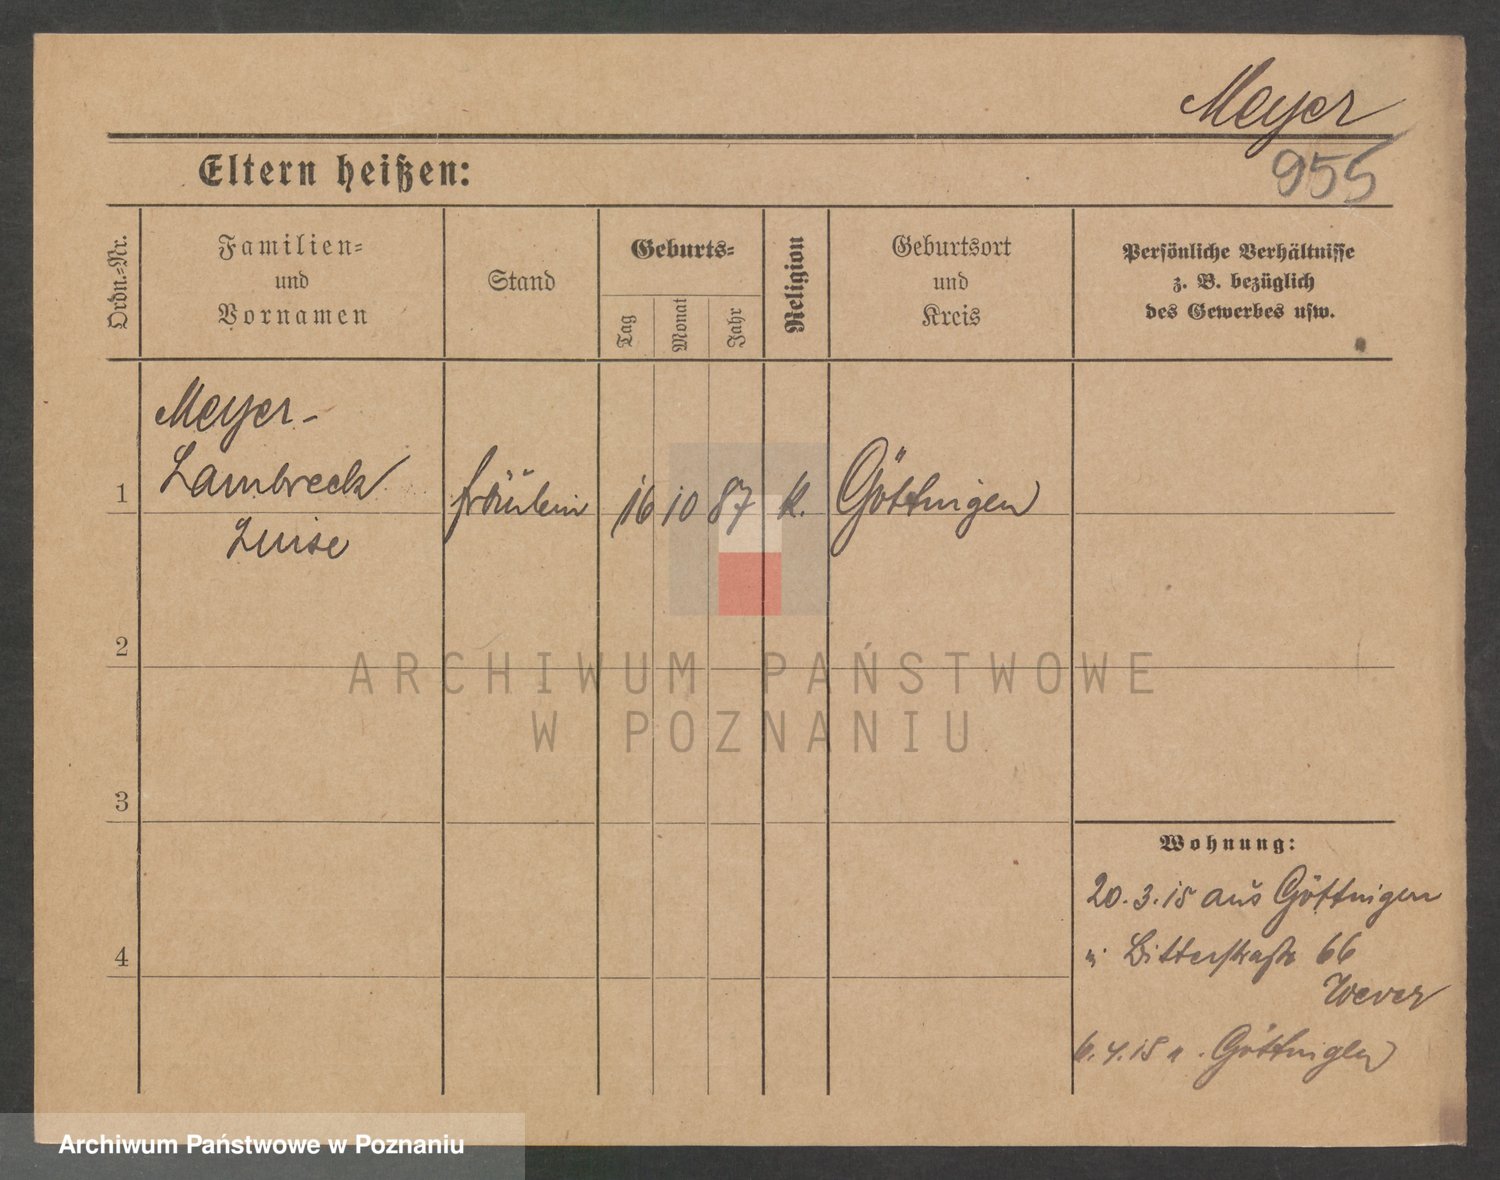 Meyer
955
Eltern heißen:
Ordn.=Nr.
Familien=
und
Vornamen
Stand
Geburts=
Tag
Monat
Jahr
Religion
Geburtsort
und
Kreis
Persönliche Verhältnisse
z. B. bezüglich
des Gewerbes usw.
Meyer-
1 Lambreck Fräulein 16 10 87 k. Göttingen
Luise
2
ARCHIWUM PAŃSTWOWE
W POZNANIU
3
Wohnung:
20.3.15 aus Göttingen
4 Bitterstraße 66
Wever
6.4.15 n. Göttingen
Archiwum Państwowe w Poznaniu